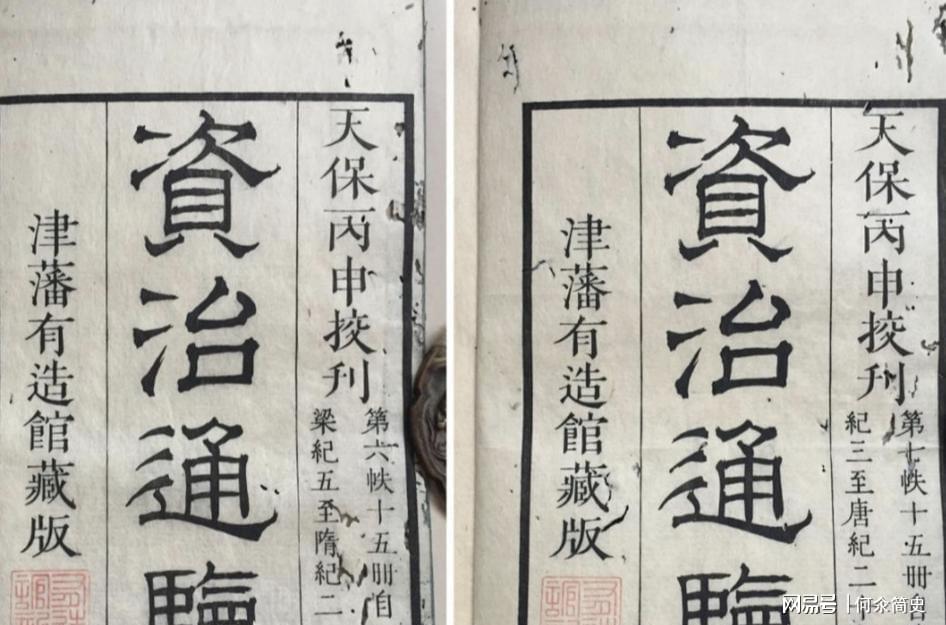 天保丙申挍刊
第六帙十五冊自
梁紀五至隋紀二
資治通鑒
津藩有造館藏版
天保丙申挍刊
第七帙十五冊自
紀三至唐紀二
資治通鑒
津藩有造館藏版
网易号 | 何汆简史